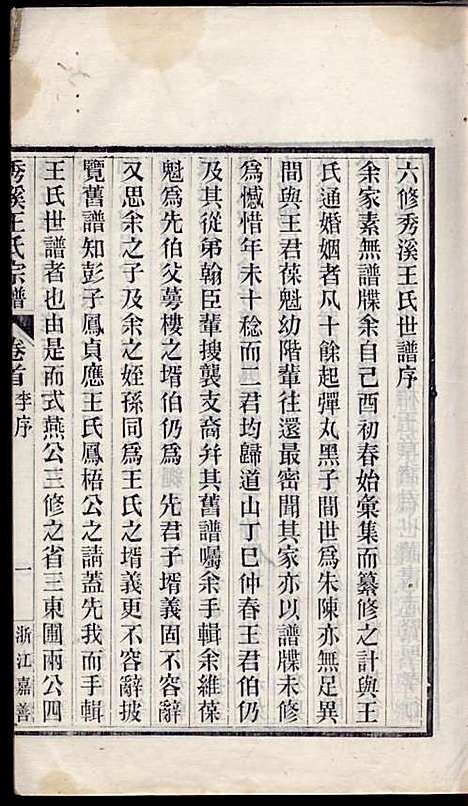 六修秀溪王氏世譜序
余家素無譜牒余自己酉初春始彙集而纂修之計與王
氏通婚姻者凡十餘起彈丸黑子間世為朱陳亦無足異
間與王君葆魁幼階輩往還最密聞其家亦以譜牒未修
為憾惜年未十稔而二君均歸道山丁巳仲春王君伯仍
及其從弟翰臣輩搜襲支裔并其舊譜囑余手輯余維葆
魁為先伯父蓴樓之壻伯仍為 先君子壻義固不容辭
又思余之子及余之姪孫同為王氏之壻義更不容辭披
覽舊譜知彭子鳳貞應王氏鳳梧公之請蓋先我而手輯
王氏世譜者也由是而式燕公三修之省三東圃兩公四
秀溪王氏宗譜 卷首 李序 一 浙江嘉善